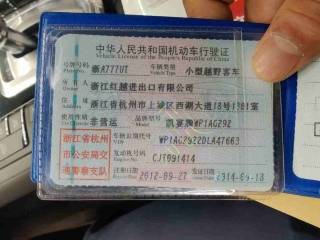 中华人民共和国机动车行驶证
Vehicle License of the People's Republic of China
号牌号码 浙A777UT 车辆类型 小型越野客车
Plate No. Vehicle Type
所有人 浙江红越进出口有限公司
Owner
住址 浙江省杭州市上城区西湖大道18号1301室
Address
使用性质 非营运 品牌型号 凯宴牌WP1AG29Z
浙江省杭州 车辆识别代号 WP1AG2922DLA47663
VIN
市公安局交 发动机号码 CJT091414
Engine No.
通警察支队 注册日期 2012-09-27 发证日期 2014-09-18